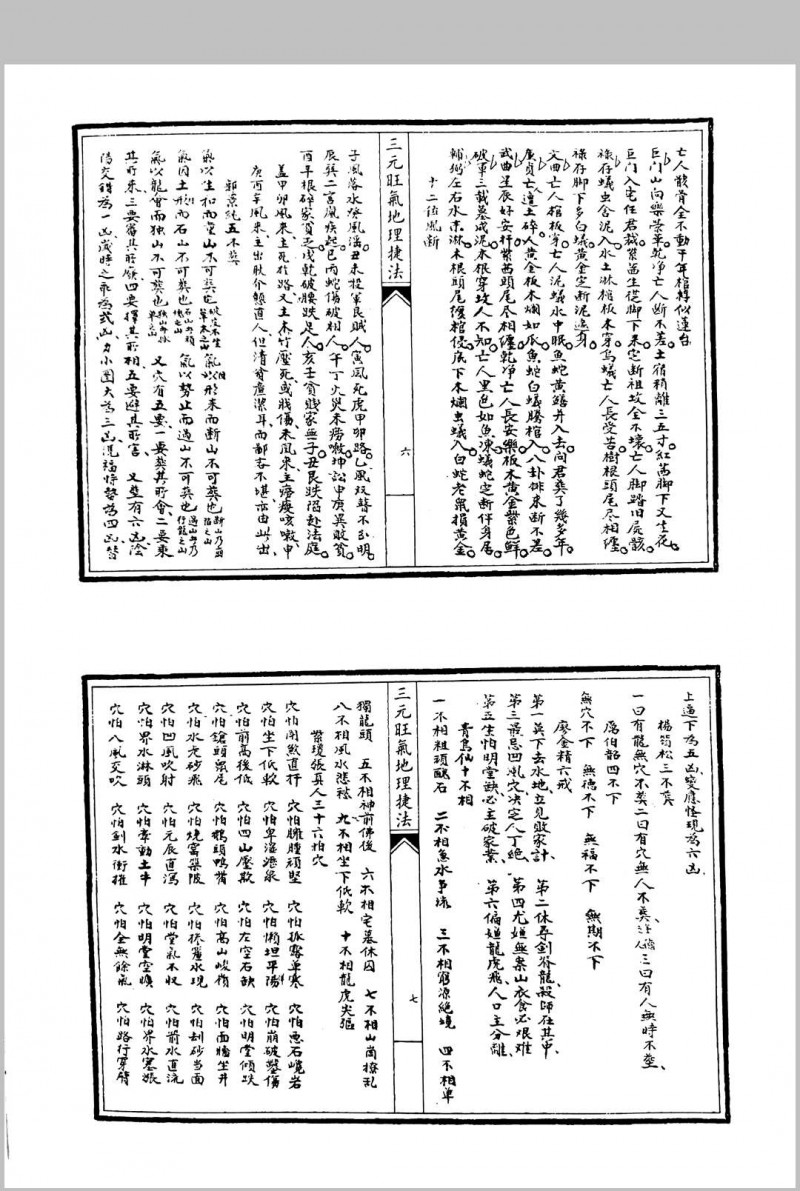 亡人骸骨全不動千年棺轉似蓮台
巨門山向樂榮華乾淨亡人斷不差土宿稍離三五寸紅
脚下又生花
巨門入宅任君裁紫
生從脚下來定斷祖坟全不壞亡人脚踏旧屍骸
祿存蟻虫含泥入水土淋棺板木穿烏蟻亡人長受苦樹根頭尾尽相纏
祿存脚下多白蟻黃金定斷泥遶身
文曲亡人棺板穿亡人泥蟻水中眠魚蛇黃鱔井入去向君葬了幾多年
廉貞亡人遭土碎人黃金板木爛如
魚蛇白蟻騰棺入八卦排來斷不差
武曲星辰好安
紫茜頭尾尽相纏乾淨亡人長安樂板木黃金紫色鮮
破軍三載墓成泥木根穿坟人不知亡人黑色如魚凍蟻蛇定斷伴身居
輔弼左右水來淋木根頭尾纏棺侵底下木爛虫蟻入白蛇老鼠損黃金
十二位風斷
三元旺氣地理捷法
六
子風落水癆風滛丑未投軍艮賊人寅風死虎甲卯路乙風双瞽不分明
辰巽二宮風疾起巳丙蛇傷破相人午丁火災未癆嗽坤訟申庚巽敗貧
酉辛根碎家貧乏戌乾破腰跌足人亥壬貧賤家無子丑艮跌陷赴法庭
蓋甲卯風來主死於路又主木竹壓死或賎傷未風來主癆瘵咳嗽申
庚酉辛風來主出耿介鯁直人但清貧廉潔耳而鄙吝不堪亦由此出
郭景純五不葬
氣以生和而童山不可葬也
氣以形來而斷山不可葬也
氣因土形而石山不可葬也
氣以勢止而過山不可葬也
氣以龍會而独山不可葬也
又穴有五要一要葬其所會二要乘
其所來三要審其所廢四要擇其所相五要避其所害
又葬有六凶陰
陽交錯為一凶歲時之乖為弍凶力小圖大為三凶凭福恃勢為四凶僭
上逼下為五凶变應怪現為六凶
楊筠松三不葬
一曰有龍無穴不葬二曰有穴無人不葬
三曰有人無時不葬
厲伯韶四不下
無穴不下 無德不下 無福不下 無期不下
廖金精六戒
第一莫下去水地立見敗家計 第二休尋剑脊龍殺師在其中
第三最忌凹風穴決定人丁絕 第四尤嫌無案山衣食必艰难
第五生怕明堂缺必主破家業 第六偏嫌龍虎飛人口主分離
青烏仙十不相
一不相祖頑醜石 二不相急水争流 三不相窮源絕境 四不相单
三元旺氣地理捷法
七
獨龍頭 五不相神前佛後 六不相宅墓休囚 七不相山崗撩乱
八不相風水悲愁 九不相坐下低軟 十不相龍虎尖頭
紫瓊張真人三十六怕穴
穴怕閗煞直杆 穴怕臃腫頑堅 穴怕孤露单寒 穴怕惡石巉岩
穴怕坐下低軟 穴怕卑湿渗泉 穴怕懶坦平陽 穴怕崩破鑿傷
穴怕前高後低 穴怕四山壓欺 穴怕左空右缺 穴怕明堂傾跌
穴怕鎗頭鼠尾 穴怕鵝頭鴨脊 穴怕高山峻嶺 穴怕面牆坐井
穴怕水走砂飛 穴怕燒窰築陂 穴怕捲簾水現 穴怕刦砂当面
穴怕凹風吹射 穴怕元辰直瀉 穴怕堂氣不收 穴怕前水直流
穴怕界水淋頭 穴怕牽動土牛 穴怕明堂空曠 穴怕界水塞脹
穴怕八風交吹 穴怕割水衝推 穴怕全無餘氣 穴怕路行穿臂